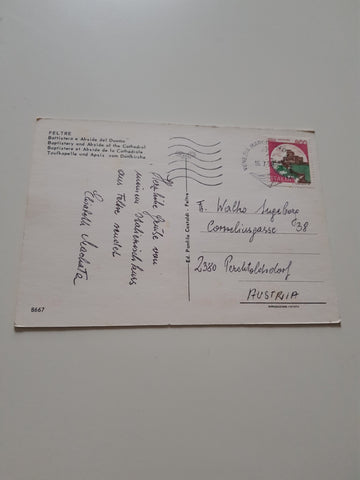 FELTRE
Battistero e Abside del Duomo
Baptistery and Abside of the Cathedral
Baptistère et Abside de la Cathédrale
Taufkapelle und Apsis vom Domkirche
Herzliche Grüße von
meinem
aus Feltre sendet
8667
Ed. Panilio Castaldi, Feltre
VENEZIA
ITALIA
F. Walko Ingeborg
Corneliusgasse 38
2380 Perchtoldsdorf
AUSTRIA